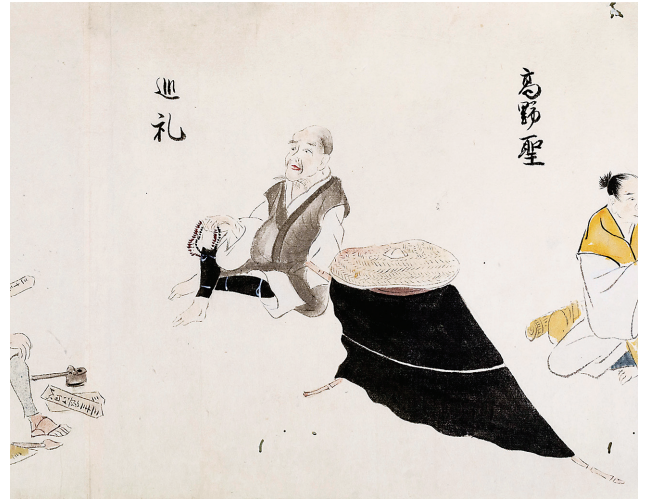 高野聖
巡礼